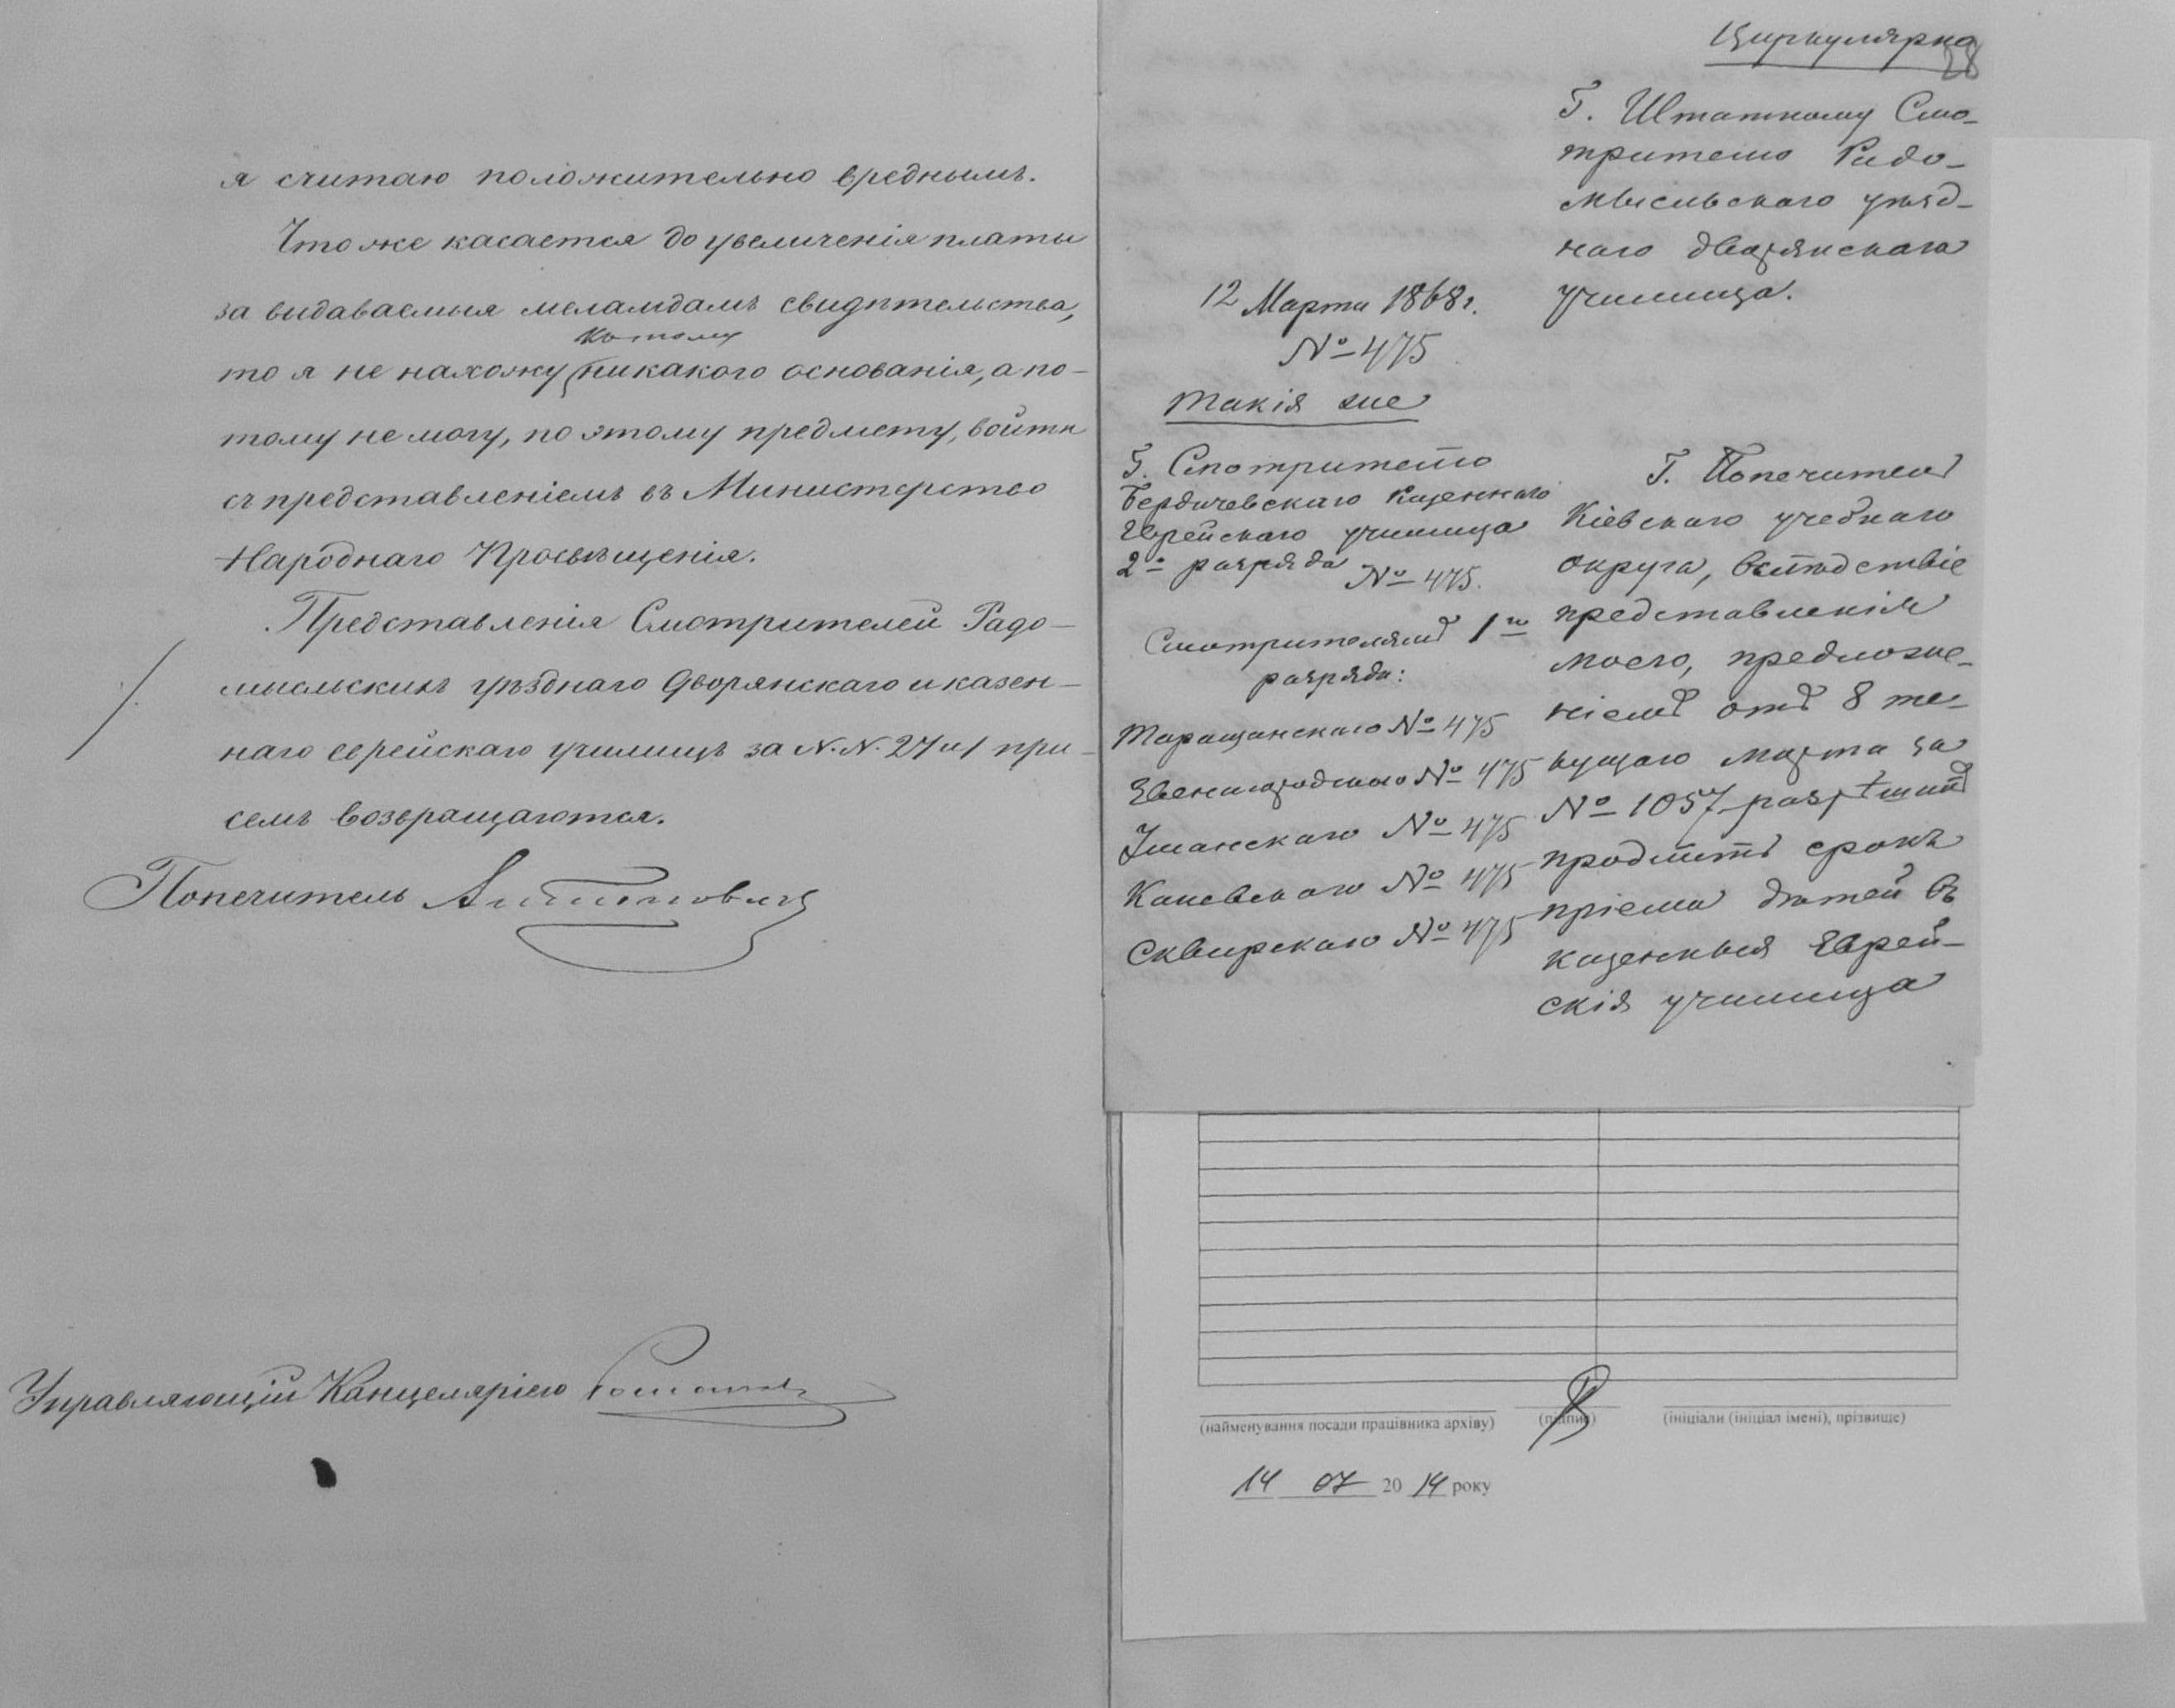 я считаю положительно вреднымъ.
Что же касается до увеличенія платы
за видаваемыя меламдамъ свидѣтельства,
къ тому
то я не нахожу никакого основанія, а по-
тому не могу, по этому предмету, войти
съ представленіемъ въ Министерство
Народнаго Просвѣщенія.
Представленія Смотрителей Радо-
мысльскихъ уѣзднаго Дворянскаго и казен-
наго еврейскаго училищъ за N.N. 27 и 1 при
семъ возвращаются.
Попечитель Антоновичъ
Управляющій Канцеляріею
Циркулярно
28
Г. Штатному Смо-
трителю Радо-
мысльскаго уѣзд-
наго дворянскаго
училища.
12 Марта 1868 г.
№ 475
Такія же
Г. Смотрителю
Бердичевскаго казеннаго
Еврейскаго училища
2го разряда
№ 475.
Смотрителямъ 1го
разряда:
Таращанскаго № 475
Звенигородскаго № 475
Уманскаго № 475
Каневскаго № 475
Сквирскаго № 475
Г. Попечитель
Кіевскаго учебнаго
округа, вслѣдствіе
представленія
моего, предложе-
ніемъ отъ 8 те-
кущаго марта за
№ 1057 разрѣшилъ
продлить срокъ
пріема дѣтей въ
казенныя Еврей-
скія училища
(найменування посади працівника архіву) (підпис) (ініціали (ініціал імені), прізвище)
14 07 20 14 року